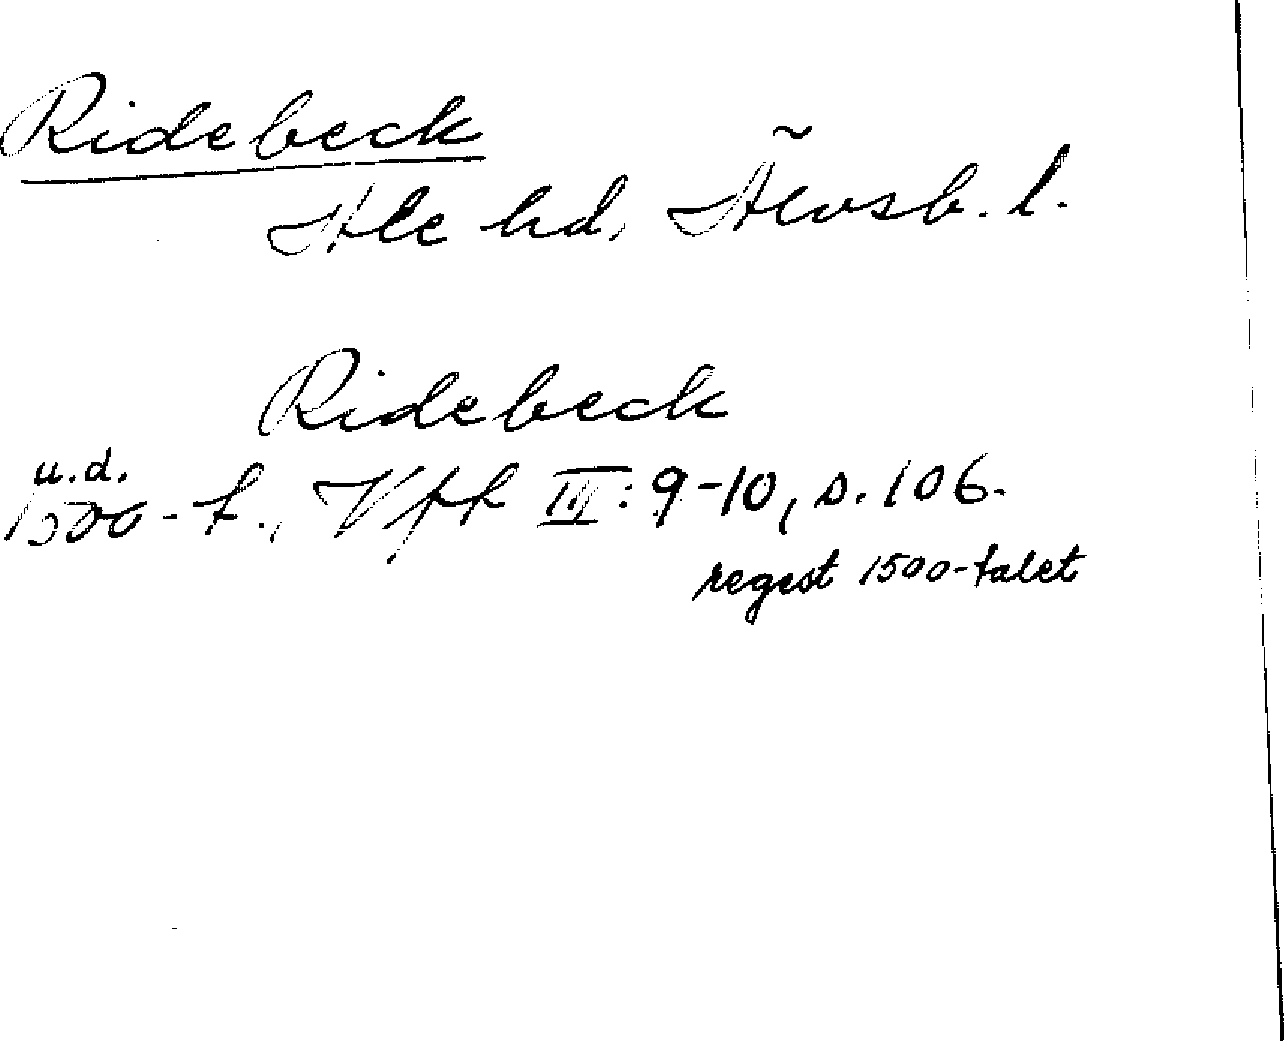 Ridebeck
Ale hd, Älvsb. l.
Ridebeck
u.d.
1500-t., Vfh III: 9-10, s. 106.
regest 1500-talet